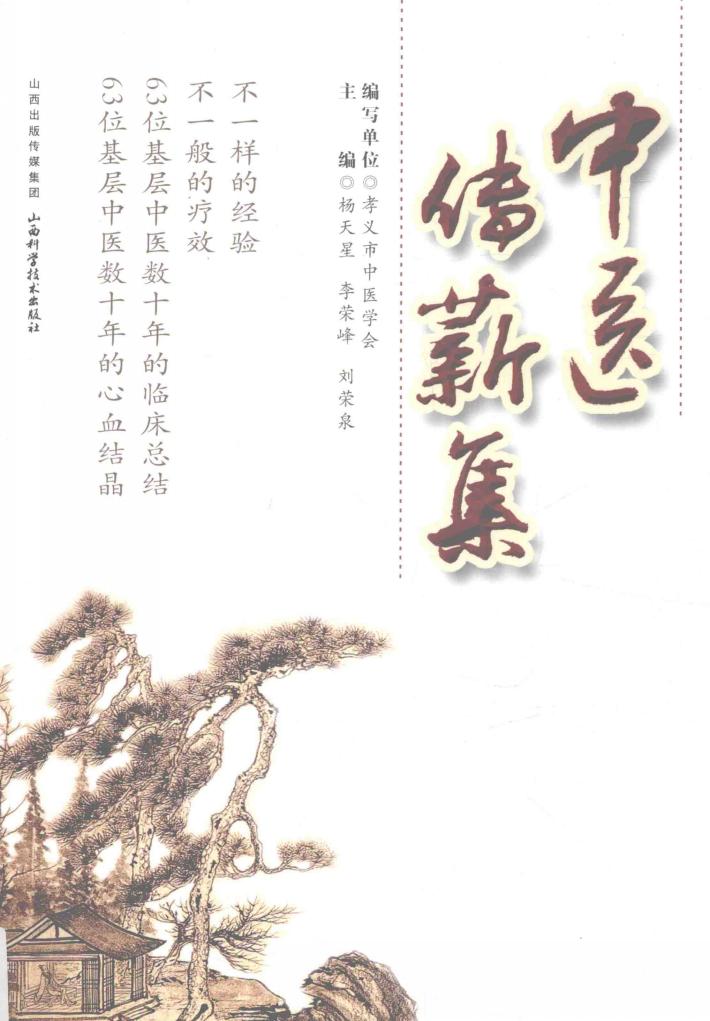 中医
传薪集
编写单位◎孝义市中医学会
主编◎杨天星 李荣峰 刘荣泉
不一样的经验
不一般的疗效
63位基层中医数十年的临床总结
63位基层中医数十年的心血结晶
山西出版传媒集团 山西科学技术出版社